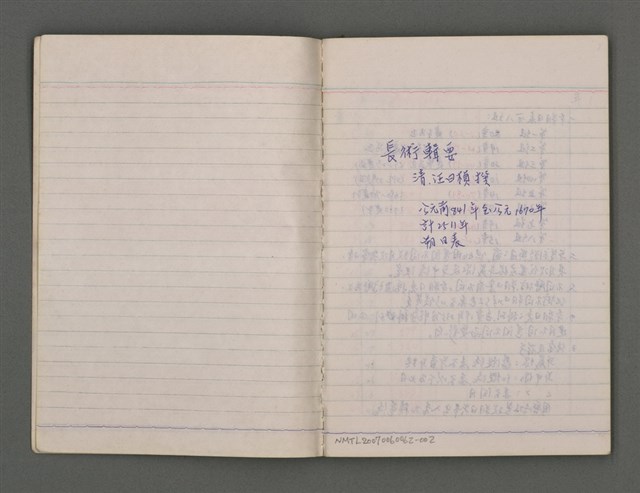 長術輯要
清.汪曰楨撰
公元前841年至公元1670年
計2511年
朔日表
NMTL20070060062-002